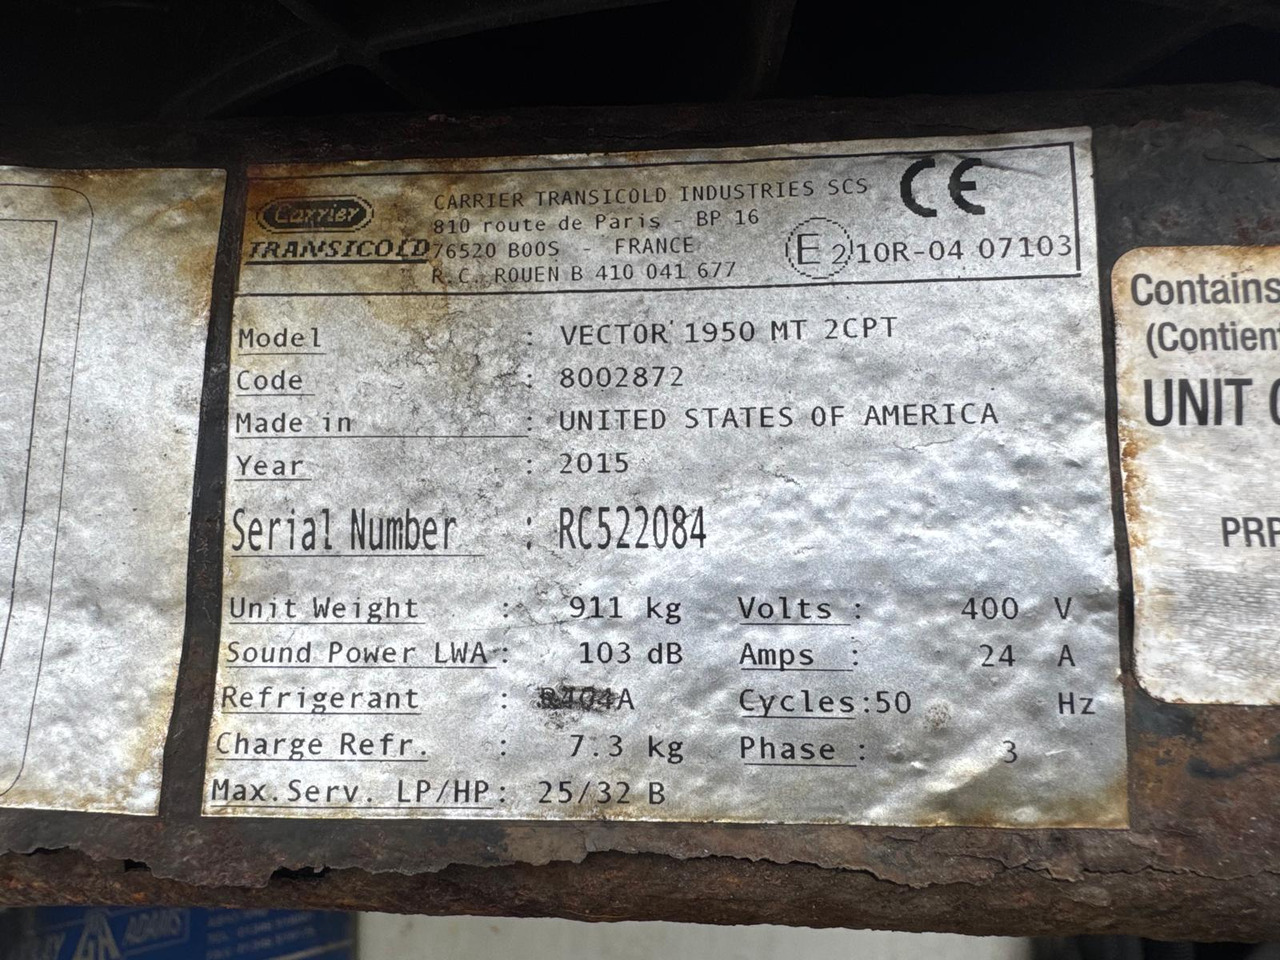 Carrier
TRANSICOLD
CARRIER TRANSICOLD INDUSTRIES SCS
810 route de Paris - BP 16
76520 BOOS - FRANCE
R.C. ROUEN B 410 041 677
CE
E 2 10R-04 07103
Model : VECTOR 1950 MT 2CPT
Code : 8002872
Made in : UNITED STATES OF AMERICA
Year : 2015
Serial Number : RC522084
Unit Weight : 911 kg Volts : 400 V
Sound Power LWA : 103 dB Amps : 24 A
Refrigerant : R404A Cycles:50 Hz
Charge Refr. : 7.3 kg Phase : 3
Max.Serv. LP/HP: 25/32 B
Contains
(Contien
UNIT
PRP
ADAMS